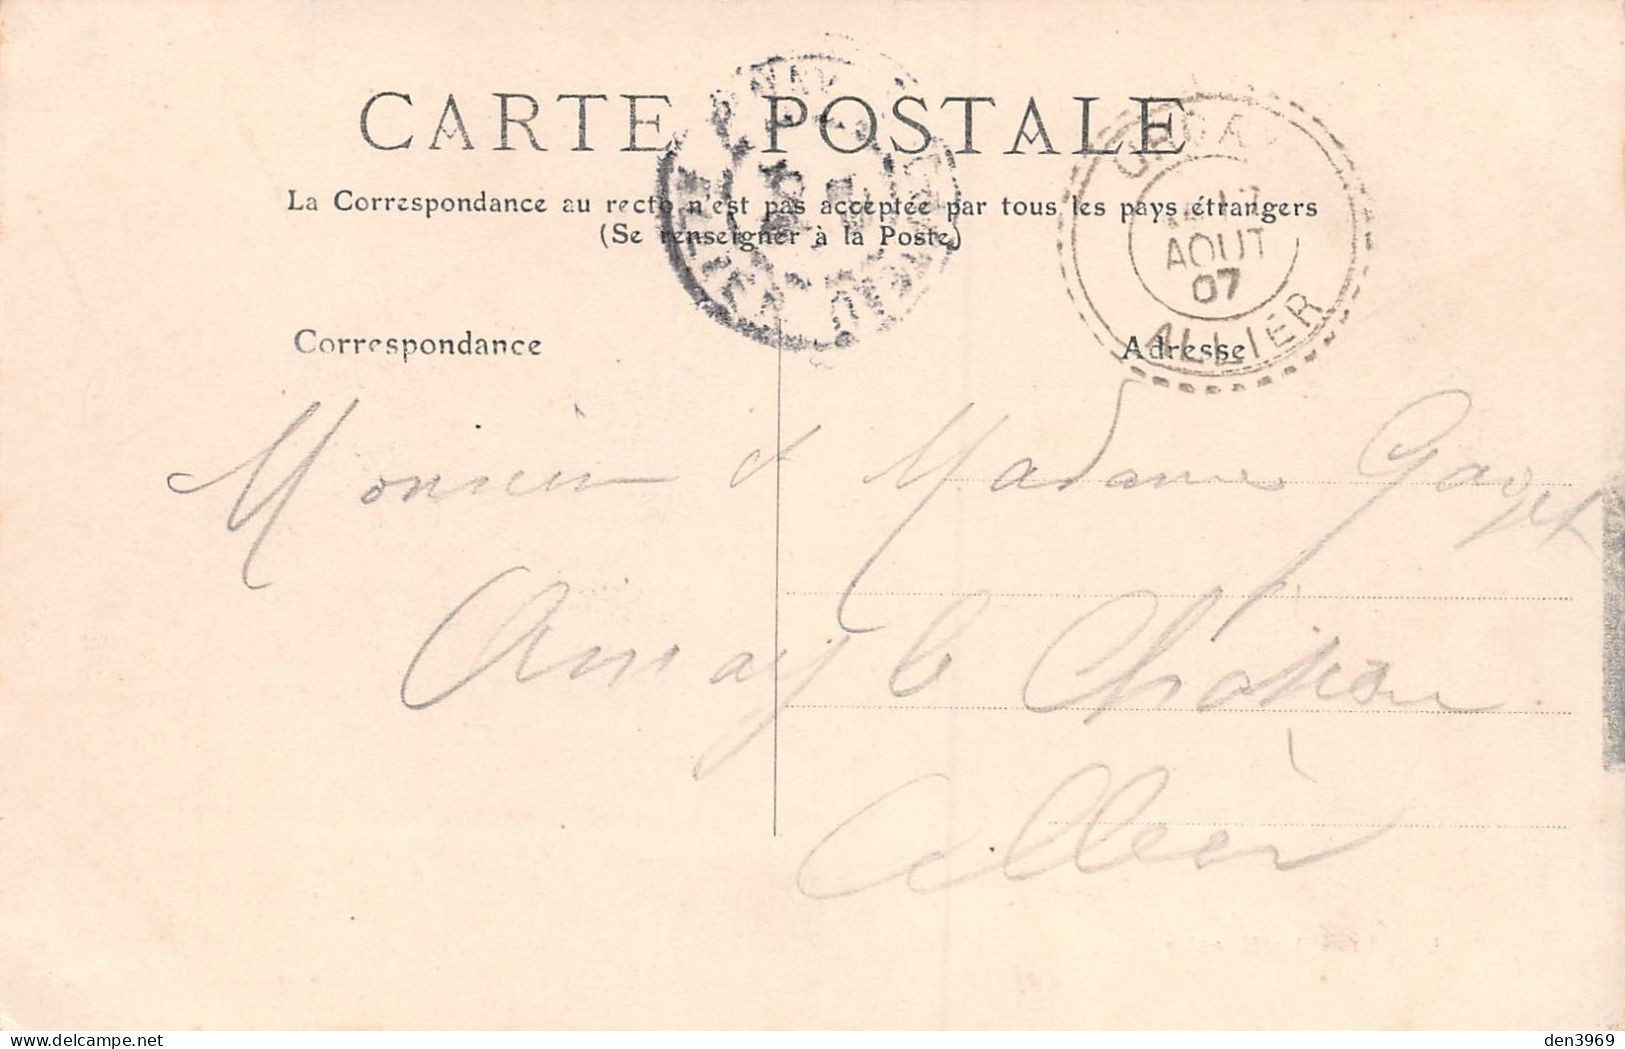 CARTE POSTALE
La Correspondance au recto n'est pas acceptée par tous les pays étrangers
(Se renseigner à la Poste)
AOUT
07
ALLIER
Correspondance
Adresse
Monsieur & Madame Gazet
Ainay le Château
Allier
den3969